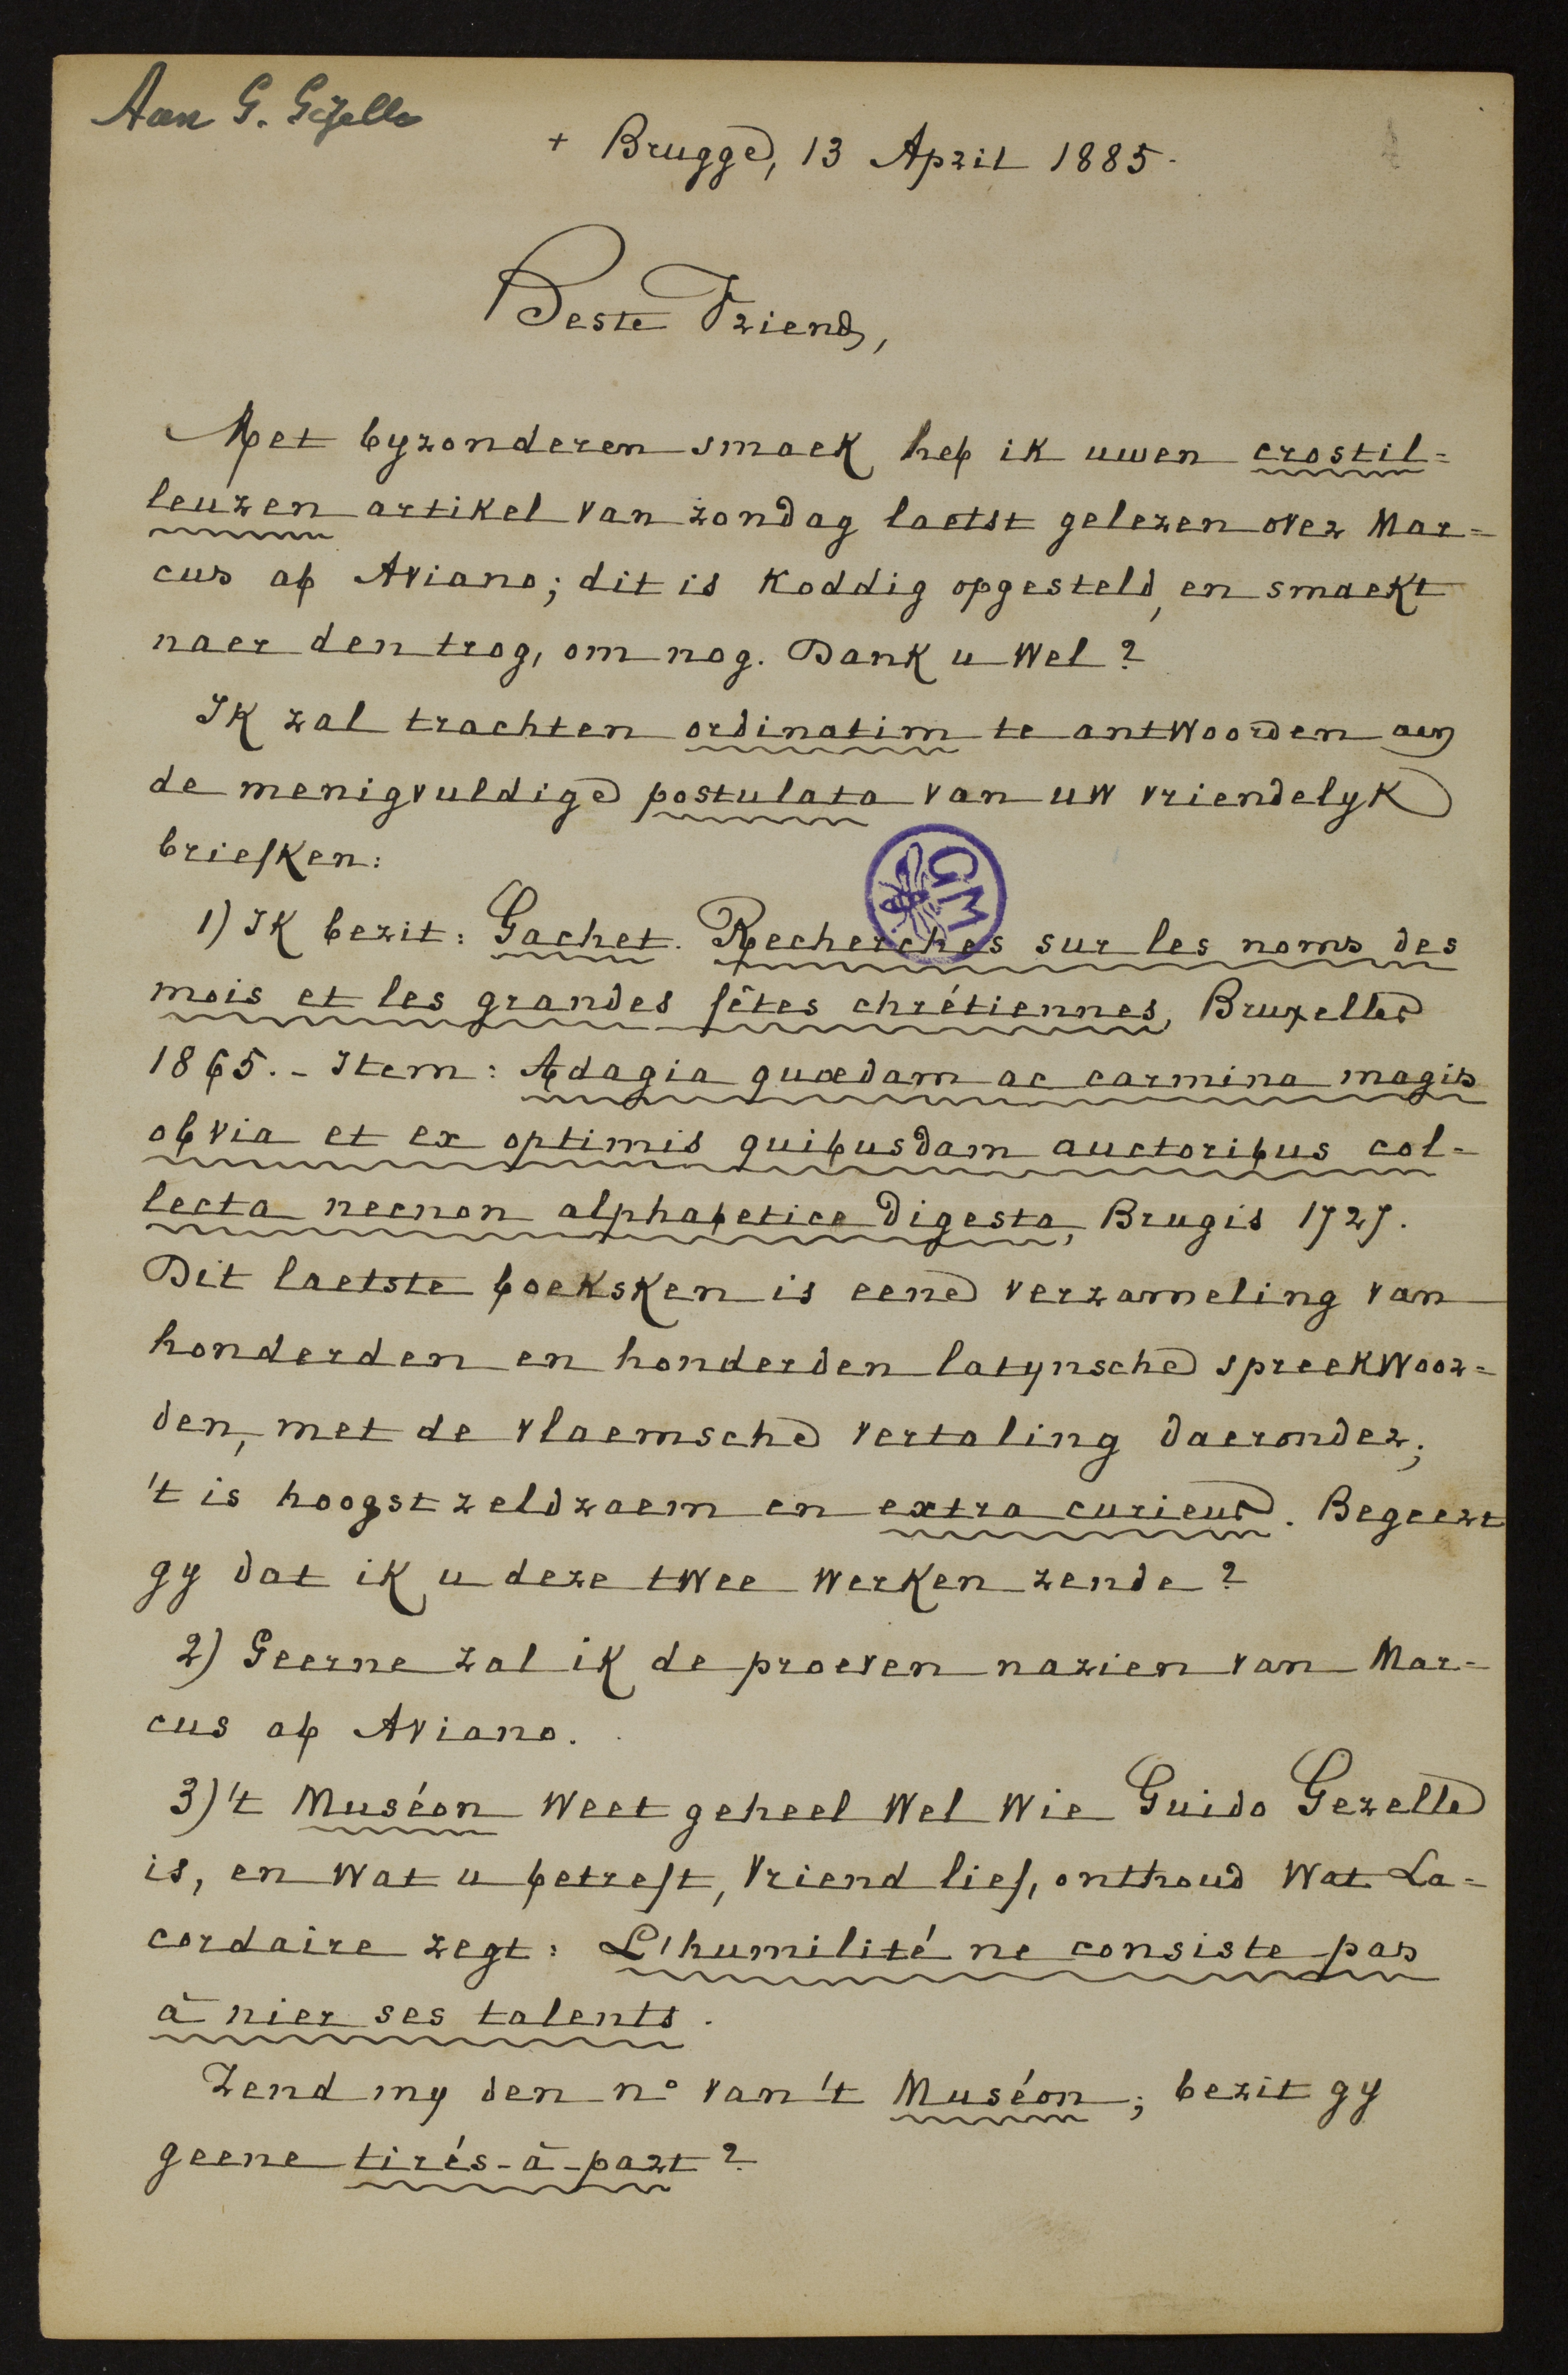 Aan G. Gezelle
+ Brugge, 13 April 1885.
Beste Vriend,
Met byzonderen smaek heb ik uwen crostil=
leuzen artikel van zondag laetst gelezen over Mar=
cus ab Aviano; dit is koddig opgesteld, en smaekt
naer den trog, om nog. Dank u wel?
Ik zal trachten ordinatim te antwoorden aen
de menigvuldige postulata van uw vriendelyk
briefken:
1) Ik bezit: Gachet. Recherches sur les noms des
mois et les grandes fêtes chrétiennes, Bruxelles
1865. - Item: Adagia quædam ac carmina magis
obvia et ex optimis quibusdam auctoribus col=
lecta necnon alphabetice digesta, Brugis 1727.
Dit laetste boeksken is eene verzameling van
honderden en honderden latynsche spreekwoor=
den, met de vlaemsche vertaling daeronder;
't is hoogst zeldzaem en extra curieus. Begeert
gy dat ik u deze twee werken zende?
2) Geerne zal ik de proeven nazien van Mar=
cus ab Aviano.
3) 't Muséon weet geheel wel wie Guido Gezelle
is, en wat u betreft, vriend lief, onthoud wat La=
cordaire zegt: L'humilité ne consiste pas
à nier ses talents.
Zend my den n° van 't Muséon; bezit gy
geene tirés-à-part?
GM